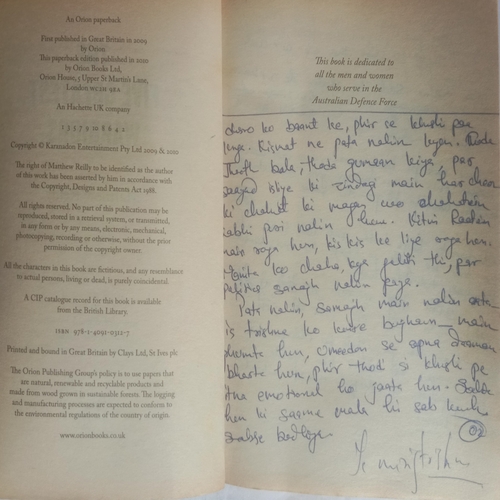 An Orion paperback
First published in Great Britain in 2009
by Orion
This paperback edition published in 2010
by Orion Books Ltd,
Orion House, 5 Upper St Martin's Lane,
London WC2H 9EA
An Hachette UK company
1 3 5 7 9 10 8 6 4 2
Copyright © Karanadon Entertainment Pty Ltd 2009 & 2010
The right of Matthew Reilly to be identified as the author
of this work has been asserted by him in accordance with
the Copyright, Designs and Patents Act 1988.
All rights reserved. No part of this publication may be
reproduced, stored in a retrieval system, or transmitted,
in any form or by any means, electronic, mechanical,
photocopying, recording or otherwise, without the prior
permission of the copyright owner.
All the characters in this book are fictitious, and any resemblance
to actual persons, living or dead, is purely coincidental.
A CIP catalogue record for this book is available
from the British Library.
ISBN 978-1-4091-0312-7
Printed and bound in Great Britain by Clays Ltd, St Ives plc
The Orion Publishing Group's policy is to use papers that
are natural, renewable and recyclable products and
made from wood grown in sustainable forests. The logging
and manufacturing processes are expected to conform to
the environmental regulations of the country of origin.
www.orionbooks.co.uk
This book is dedicated to
all the men and women
who serve in the
Australian Defence Force
ko baant ke, phir se khushi paa
Kismat ne pata nahin kyon.
bola, thoda gumaan kiya par
isliye ki zindagi main har
ki chahat ki magar
kabhi puri nahin hui. Kitni
main roya hun, kis kis ke liye roya hun.
ko chaha, kya galti thi, par
samajh nahin paya.
Pata nahin, samajh main nahin aata
is trishna ko kaise bujhaun main
hun, umeedon se apna daaman
bharte hun, phir thodi si khushi pe
itna emotional ho jaate hun.
hun ki saamne wala hi sab kuch
02